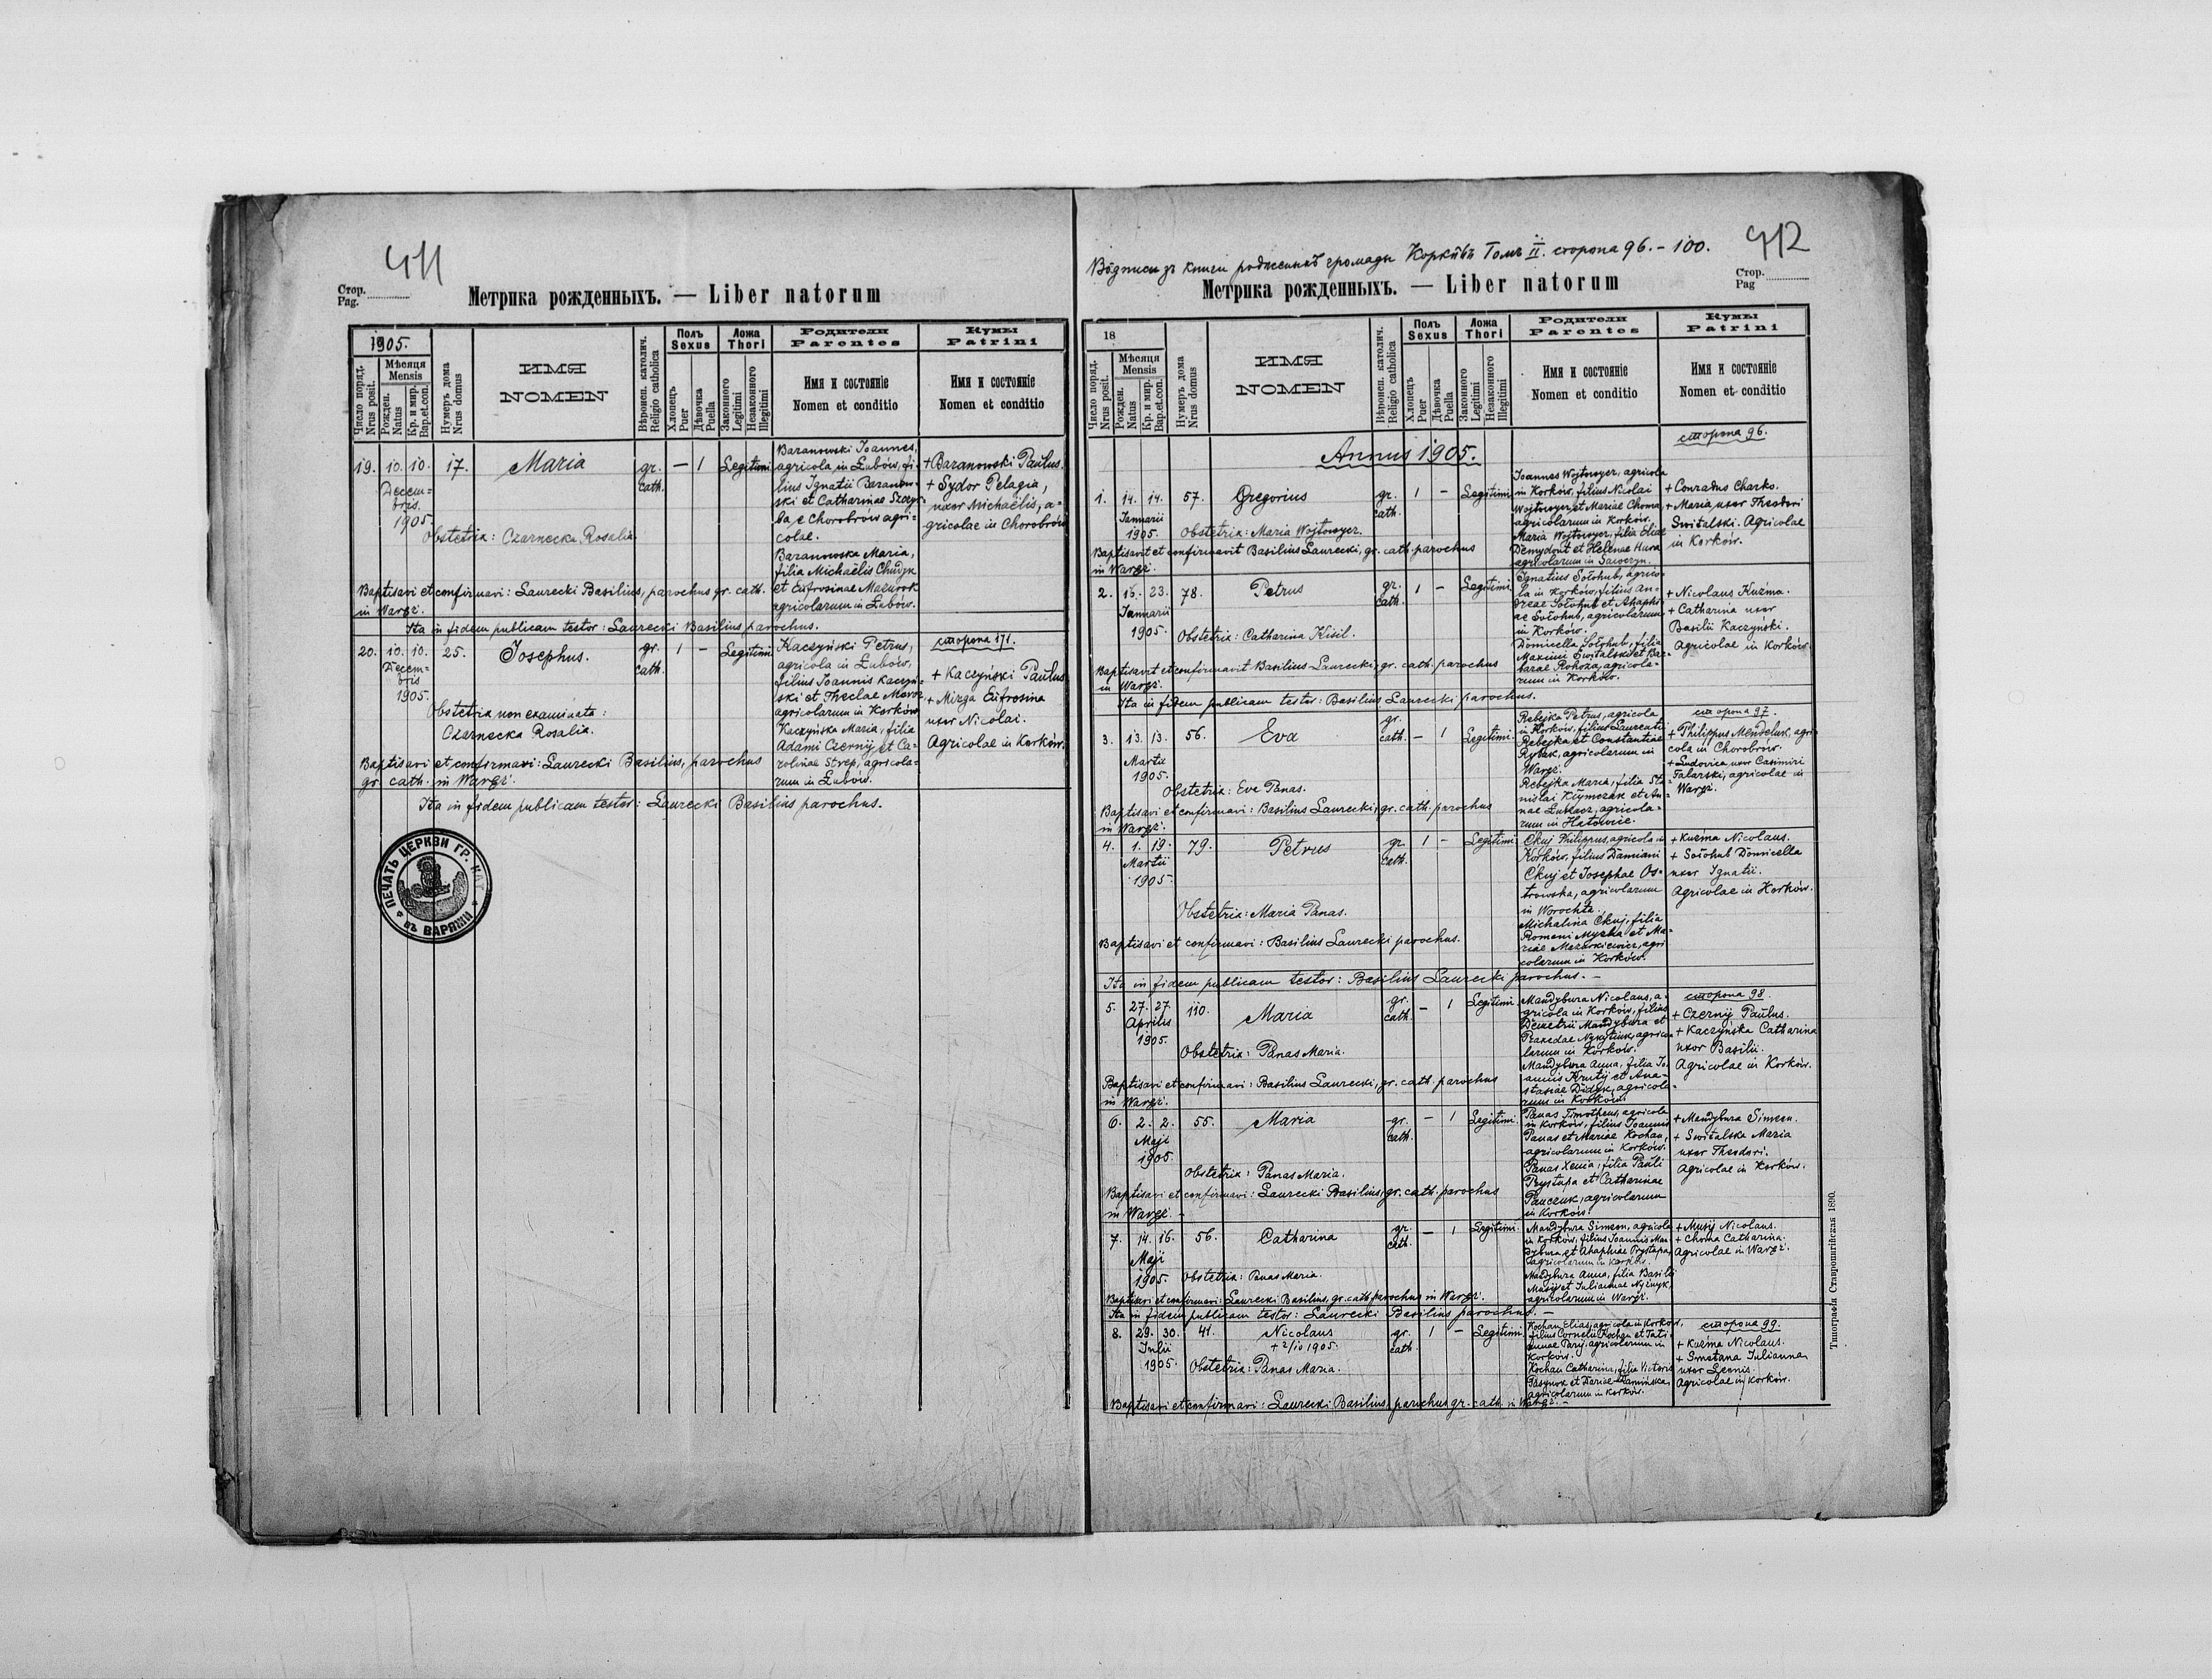 411
Стор.
Pag.
Метрика рожденныхъ. — Liber natorum
1905.
Число поряд.
Nrus posit.
Мѣсяця
Mensis
Рожден.
Natus
Кр. и мир.
Bap.et.con.
Нумеръ дома
Nrus domus
ИМЯ
NOMEN
Вѣроисп. католич.
Religio catholica
Полъ
Sexus
Хлопецъ
Puer
Дѣвочка
Puella
Ложа
Thori
Законного
Legitimi
Незаконного
Illegitimi
Родители
Parentes
Имя и состояніе
Nomen et conditio
Кумы
Patrini
Имя и состояніе
Nomen et conditio
19. 10. 10. 17. Maria gr. cath. — 1 Legitimi
Decem-
bris
1905.
Obstetrix: Czarnecka Rosalia
Baranowski Joannes,
agricola in Łubów, fi-
lius Ignatii Baranow-
ski et Catharinae Szczer-
ba e Chorobrów agri-
colae.
Baranowska Maria,
filia Michaëlis Chudyk
et Eufrosinae Mazurok
agricolarum in Łubów.
+ Baranowski Paulus.
+ Sydor Pelagia,
uxor Michaëlis, a-
gricolae in Chorobrów
Baptisavi et confirmavi: Laurecki Basilius, parochus gr. cath.
in Waręż.
Ita in fidem publicam testor: Laurecki Basilius parochus.
20. 10. 10. 25. Josephus. gr. cath. 1 — Legitimi
Decem-
bris
1905.
Obstetrix non examinata:
Czarnecka Rosalia.
Kaczyński Petrus,
agricola in Łubów,
filius Joannis Kaczyń-
ski et Theclae Moroz
agricolarum in Korków
Kaczyńska Maria, filia
Adami Czernij et Ca-
rolinae Strep, agricola-
rum in Łubów.
сторона 171.
+ Kaczyński Paulus
+ Mirga Eufrosina
uxor Nicolai.
Agricolae in Korków.
Baptisavi et confirmavi: Laurecki Basilius, parochus
gr. cath. in Waręż.
Ita in fidem publicam testor: Laurecki Basilius parochus.
ПЕЧАТЬ ЦЕРКВИ ГР. КАТ.
ВЪ ВАРЯЖИ
412
Вôдписи зъ книги родженыхъ громады Коркôвъ Томъ II. сторона 96. – 100.
Стор.
Pag
Метрика рожденныхъ. — Liber natorum
18
Число поряд.
Nrus posit.
Мѣсяця
Mensis
Рожден.
Natus
Кр. и мир.
Bap.et.con.
Нумеръ дома
Nrus domus
ИМЯ
NOMEN
Вѣроисп. католич.
Religio catholica
Полъ
Sexus
Хлопецъ
Puer
Дѣвочка
Puella
Ложа
Thori
Законного
Legitimi
Незаконного
Illegitimi
Родители
Parentes
Имя и состояніе
Nomen et conditio
Кумы
Patrini
Имя и состояніе
Nomen et conditio
сторона 96.
Annus 1905.
1. 14. 14. 57. Gregorius gr. cath. 1 — Legitimi
Januarii
1905.
Obstetrix: Maria Wojtowycz.
Joannes Wojtowycz, agricola
in Korków, filius Nicolai
Wojtowycz et Mariae Choma,
agricolarum in Korków.
Maria Wojtowycz, filia Eliae
Demydont et Helenae Hura
agricolarum in Sawczyn.
+ Conradus Charko.
+ Maria uxor Theodori
Switalski. Agricolae
in Korków.
Baptisavit et confirmavit Basilius Laurecki, gr. cath. parochus
in Waręż.
2. 16. 23. 78. Petrus gr. cath. 1 — Legitimi
Januarii
1905.
Obstetrix: Catharina Kisil.
Ignatius Sołohub, agrico-
la in Korków, filius An-
dreae Sołohub et Ahaphi-
ae Sołohub, agricolarum
in Korków.
Domicella Sołohub, filia
Maximi Switalski et Bar-
barae Rohoza, agricola-
rum in Korków.
+ Nicolaus Kuźma.
+ Catharina uxor
Basilii Kaczyński.
Agricolae in Korków.
Baptisavit et confirmavit Basilius Laurecki, gr. cath. parochus
in Waręż.
Ita in fidem publicam testor: Basilius Laurecki parochus.
3. 13. 13. 56. Eva gr. cath. — 1 Legitimi.
Martii
1905.
Obstetrix: Eva Panas.
Rebejka Petrus, agricola
in Korków, filius Laurentii
Rebejka et Constantiae
Rybak, agricolarum in
Waręż.
Rebejka Maria, filia Sta-
nislai Klymczak et An-
nae Łubacz, agricola-
rum in Hatowice.
сторона 97.
+ Philippus Mendeluk, agri-
cola in Chorobrów.
+ Ludovica uxor Casimiri
Talarski, agricolae in
Waręż.
Baptisavi et confirmavi: Basilius Laurecki, gr. cath. parochus
in Waręż.
4. 1. 19. 79. Petrus gr. cath. 1 — Legitimi
Martii
1905.
Obstetrix: Maria Panas.
Ckuj Philippus, agricola in
Korków, filius Damiani
Ckuj et Josephae Os-
trowska, agricolarum
in Worochta.
Michalina Ckuj, filia
Romani Mycka et Ma-
riae Mazurkiewicz, agri
colarum in Korków.
+ Kuźma Nicolaus.
+ Sołohub Domicella
uxor Ignatii.
Agricolae in Korków.
Baptisavi et confirmavi: Basilius Laurecki parochus.
Ita in fidem publicam testor: Basilius Laurecki parochus. —
5. 27. 27. 110. Maria gr. cath. — 1 Legitimi.
Aprilis
1905.
Obstetrix: Panas Maria.
Mandybura Nicolaus, a-
gricola in Korków, filius
Demetrii Mandybura et
Praxedae Nykytiuk, agrico-
larum in Korków.
Mandybura Anna, filia Jo-
annis Krutij et Ana-
stasiae Didyk, agricola-
rum in Korków.
сторона 98.
+ Czernij Paulus.
+ Kaczyńska Catharina
uxor Basilii.
Agricolae in Korków.
Baptisavi et confirmavi: Basilius Laurecki, gr. cath. parochus
in Waręż.
6. 2. 2. 55. Maria gr. cath. — 1 Legitimi.
Maji
1905.
Obstetrix: Panas Maria.
Panas Timotheus, agricola
in Korków, filius Joannis
Panas et Mariae Kochan,
agricolarum in Korków.
Panas Xenia, filia Pauli
Prystupa et Catharinae
Panczuk, agricolarum
in Korków.
+ Mandybura Simeon.
+ Switalska Maria
uxor Theodori.
Agricolae in Korków.
Baptisavi et confirmavi: Laurecki Basilius, gr. cath. parochus
in Waręż. —
7. 14. 16. 56. Catharina gr. cath. — 1 Legitimi.
Maji
1905.
Obstetrix: Panas Maria.
Mandybura Simeon, agricola
in Korków, filius Joannis Man-
dybura et Ahaphiae Prystupa,
agricolarum in Korków.
Mandybura Anna, filia Basilii
Musij et Juliannae Nyżnyk,
agricolarum in Waręż.
+ Musij Nicolaus.
+ Choma Catharina.
Agricolae in Waręż.
Baptisavi et confirmavi: Laurecki Basilius, gr. cath. parochus in Waręż.
Ita in fidem publicam testor: Laurecki Basilius parochus. —
8. 29. 30. 41. Nicolaus gr. cath. 1 — Legitimi.
Julii + 2/10 1905.
1905.
Obstetrix: Panas Maria.
Kochan Elias, agricola in Korków,
filius Cornelii Kochan et Tati-
annae Parij, agricolarum in
Korków.
Kochan Catharina, filia Victoris
Pasynok et Dariae Kamińska,
agricolarum in Korków.
сторона 99.
+ Kuźma Nicolaus.
+ Smetana Julianna
uxor Leonis.
Agricolae in Korków.
Baptisavi et confirmavi: Laurecki Basilius, parochus gr. cath. in Waręż. —
Типографія Ставропигійская 1890.